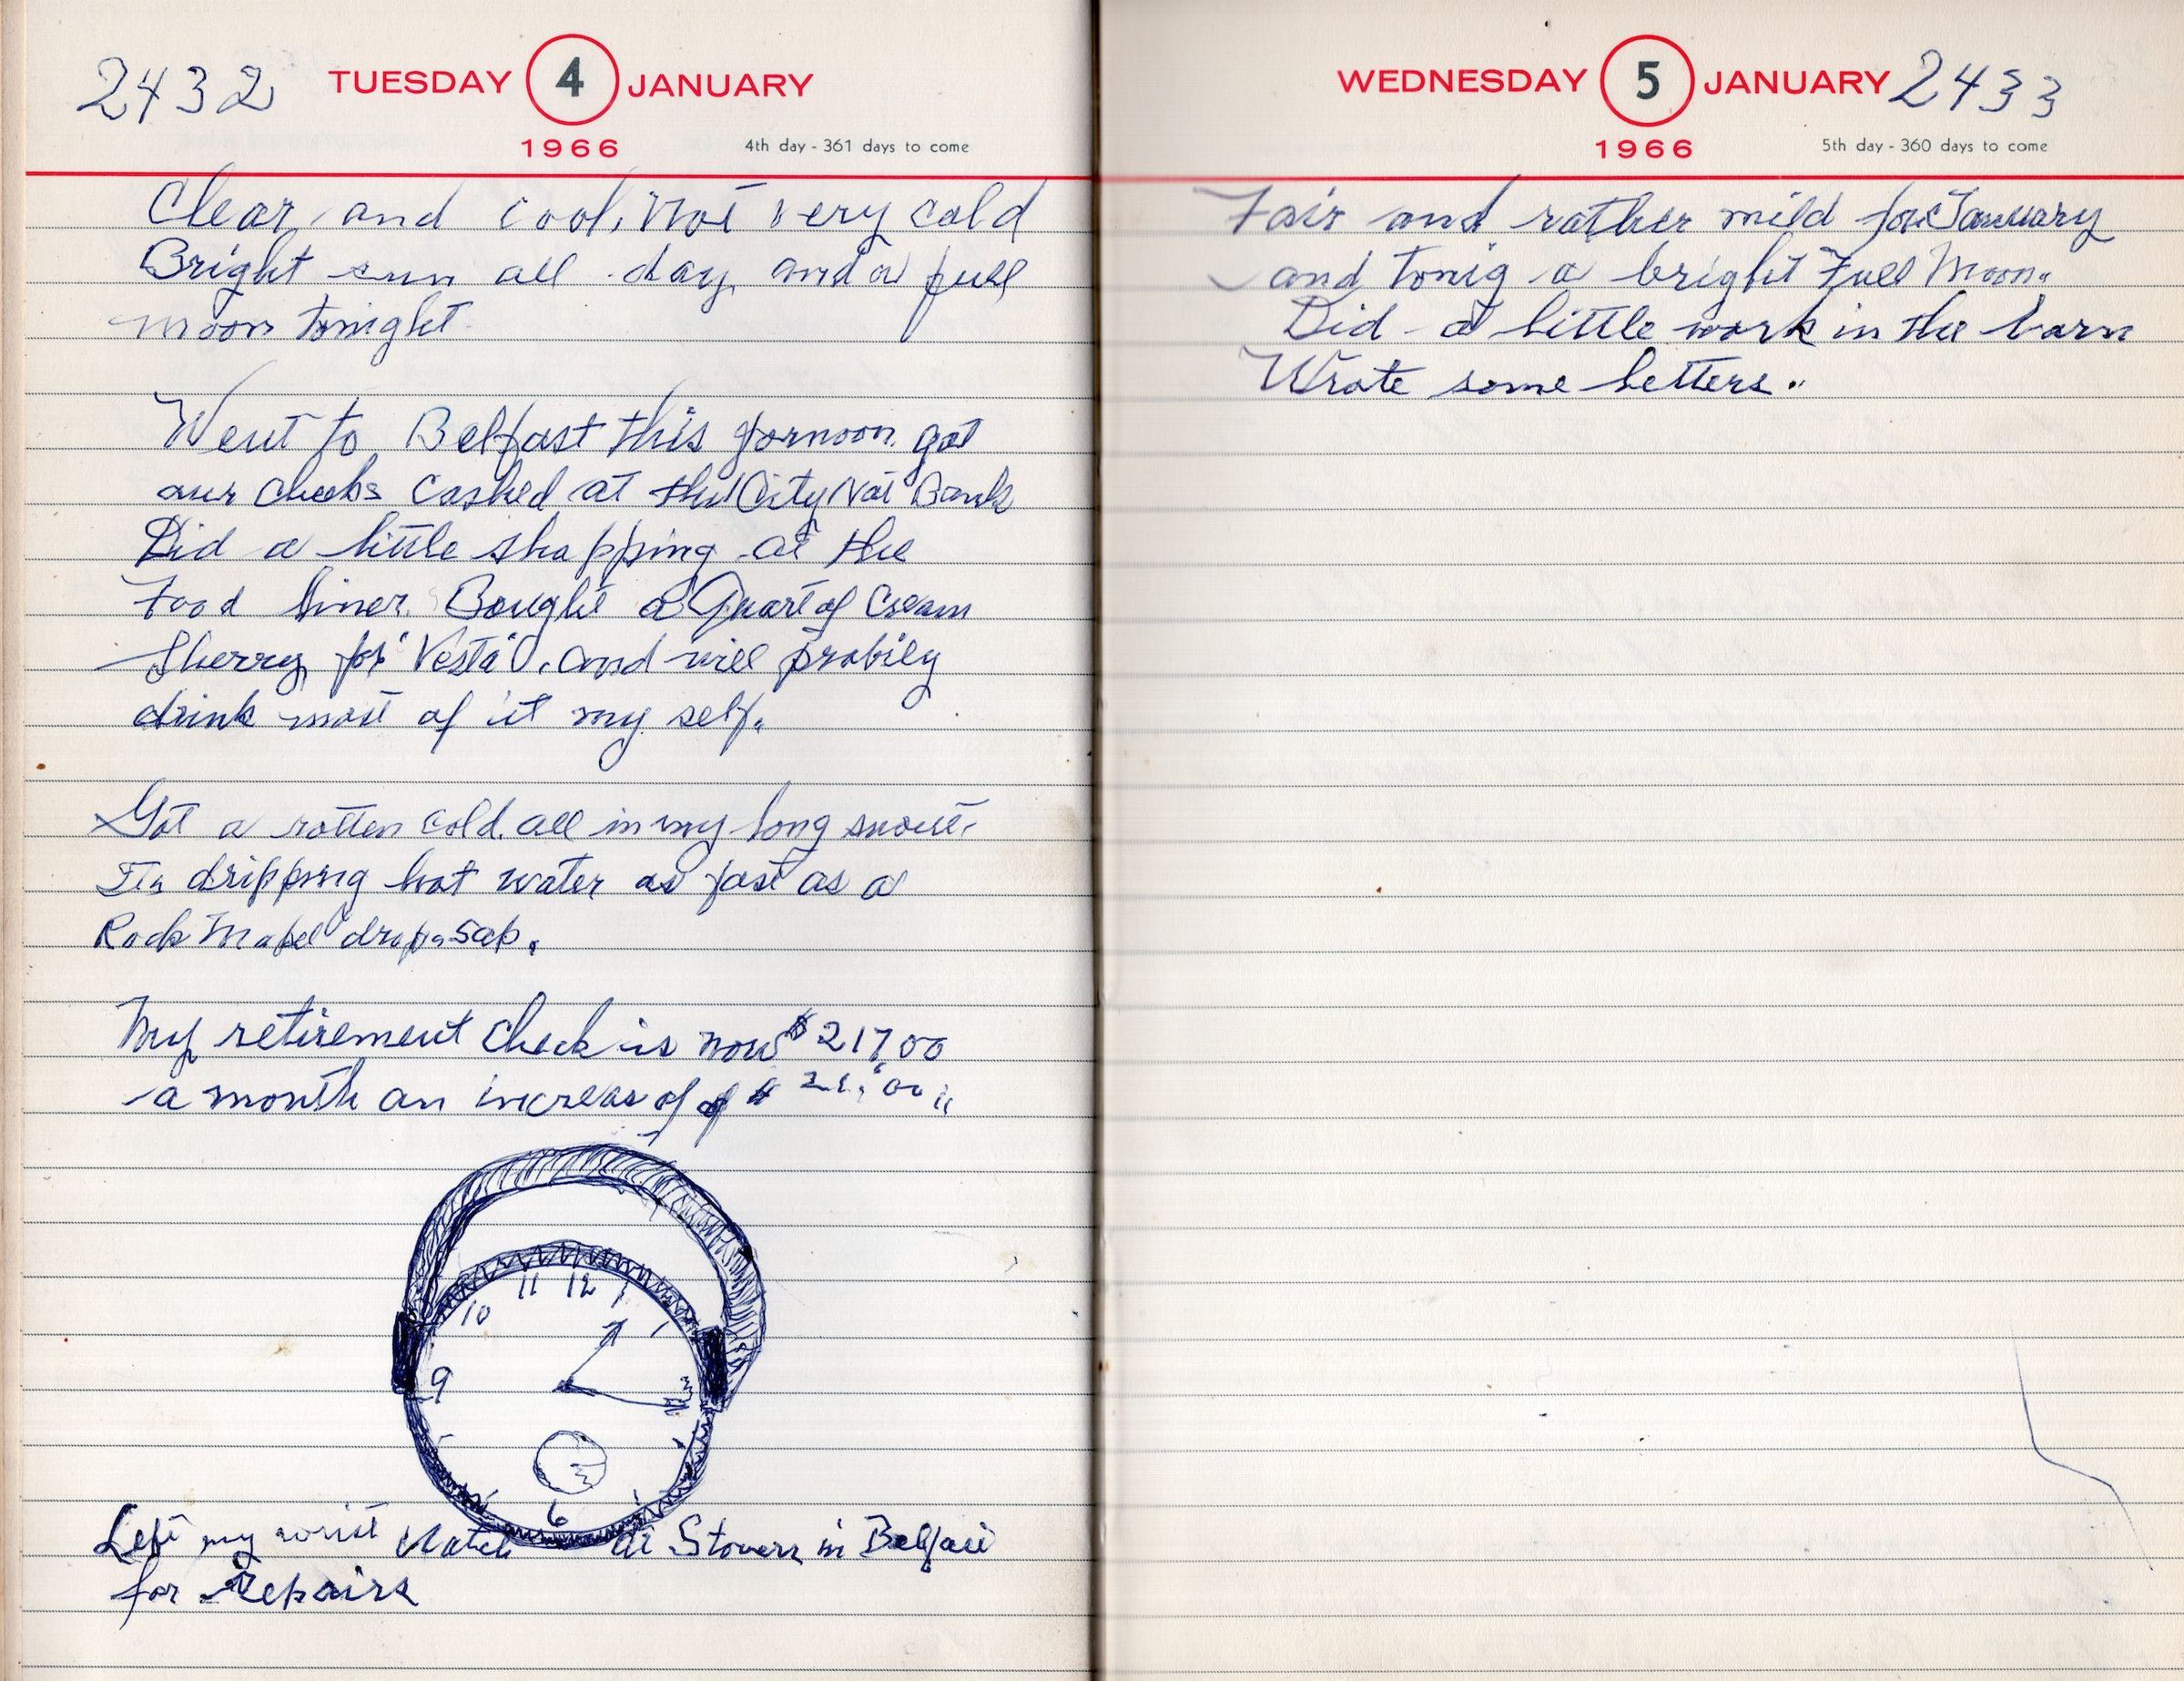 2432 TUESDAY 4 JANUARY
1966 4th day - 361 days to come
Clear, and cool, Not very cold
Bright sun all day, and a full
moon tonight.
Went to Belfast this fornoon. got
our checks cashed at the City Nat Bank
Did a little shopping at the
Food liner. Bought a Quart of Cream
Sherry for "Vesta". and will probily
drink most of it my self.
Got a rotten cold. all in my long snout.
Its dripping hot water as fast as a
Rock Mapel drops sap.
My retirement check is now $217.00
a month an increas of of $ 21.00
11 12 1
10
9 3
6
Left my wrist Watch at Stovers in Belfast
for Repairs
WEDNESDAY 5 JANUARY 2433
1966 5th day - 360 days to come
Fair and rather mild for January
and tonig a bright Full Moon.
Did a little work in the barn
Wrote some letters..